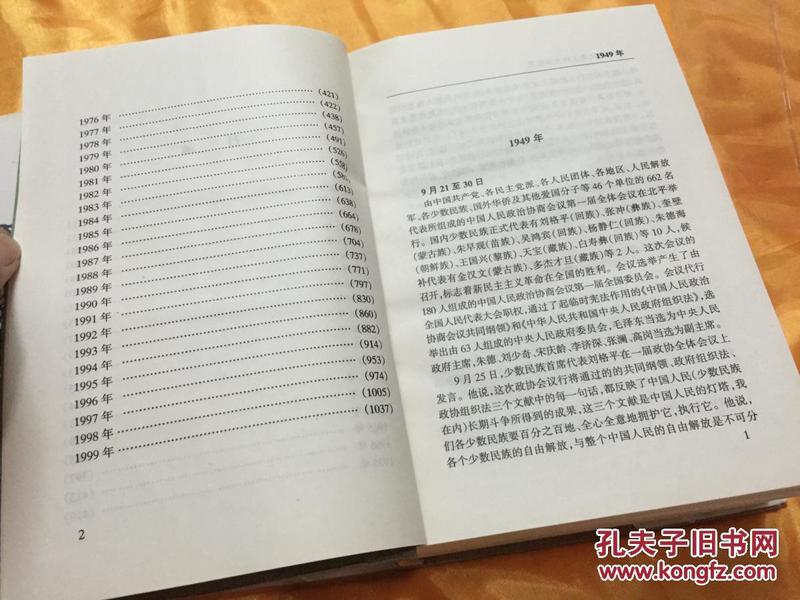 1976 年 (421)
1977 年 (422)
1978 年 (438)
1979 年 (457)
1980 年 (491)
1981 年 (526)
1982 年 (558)
1983 年
1984 年 (613)
1985 年 (638)
1986 年 (664)
1987 年 (678)
1988 年 (704)
1989 年 (737)
1990 年 (771)
1991 年 (797)
1992 年 (830)
1993 年 (860)
1994 年 (882)
1995 年 (914)
1996 年 (953)
1997 年 (974)
1998 年 (1005)
1999 年 (1037)
2
1949 年
1949 年
9 月 21 至 30 日
由中国共产党、各民主党派、各人民团体、各地区、人民解放
军、各少数民族、国外华侨及其他爱国分子等 46 个单位的 662 名
代表所组成的中国人民政治协商会议第一届全体会议在北平举
行。国内少数民族正式代表有刘格平(回族)、张冲(彝族)、奎壁
(蒙古族)、朱早观(苗族)、吴鸿宾(回族)、杨静仁(回族)、朱德海
(朝鲜族)、王国兴(黎族)、天宝(藏族)、白寿彝(回族)等 10 人,候
补代表有金汉文(蒙古族)、多杰才旦(藏族)等 2 人。这次会议的
召开,标志着新民主主义革命在全国的胜利。会议选举产生了由
180 人组成的中国人民政治协商会议第一届全国委员会。会议代行
全国人民代表大会职权,通过了起临时宪法作用的《中国人民政治
协商会议共同纲领》和《中华人民共和国中央人民政府组织法》,选
举出由 63 人组成的中央人民政府委员会,毛泽东当选为中央人民
政府主席,朱德、刘少奇、宋庆龄、李济深、张澜、高岗当选为副主席。
9 月 25 日,少数民族首席代表刘格平在一届政协全体会议上
发言。他说,这次政协会议行将通过的的共同纲领、政府组织法、
政协组织法三个文献中的每一句话,都反映了中国人民(少数民族
在内)长期斗争所得到的成果,这三个文献是中国人民的灯塔,我
们各少数民族要百分之百地、全心全意地拥护它,执行它。他说,
各个少数民族的自由解放,与整个中国人民的自由解放是不可分
1
孔夫子旧书网
www.kongfz.com